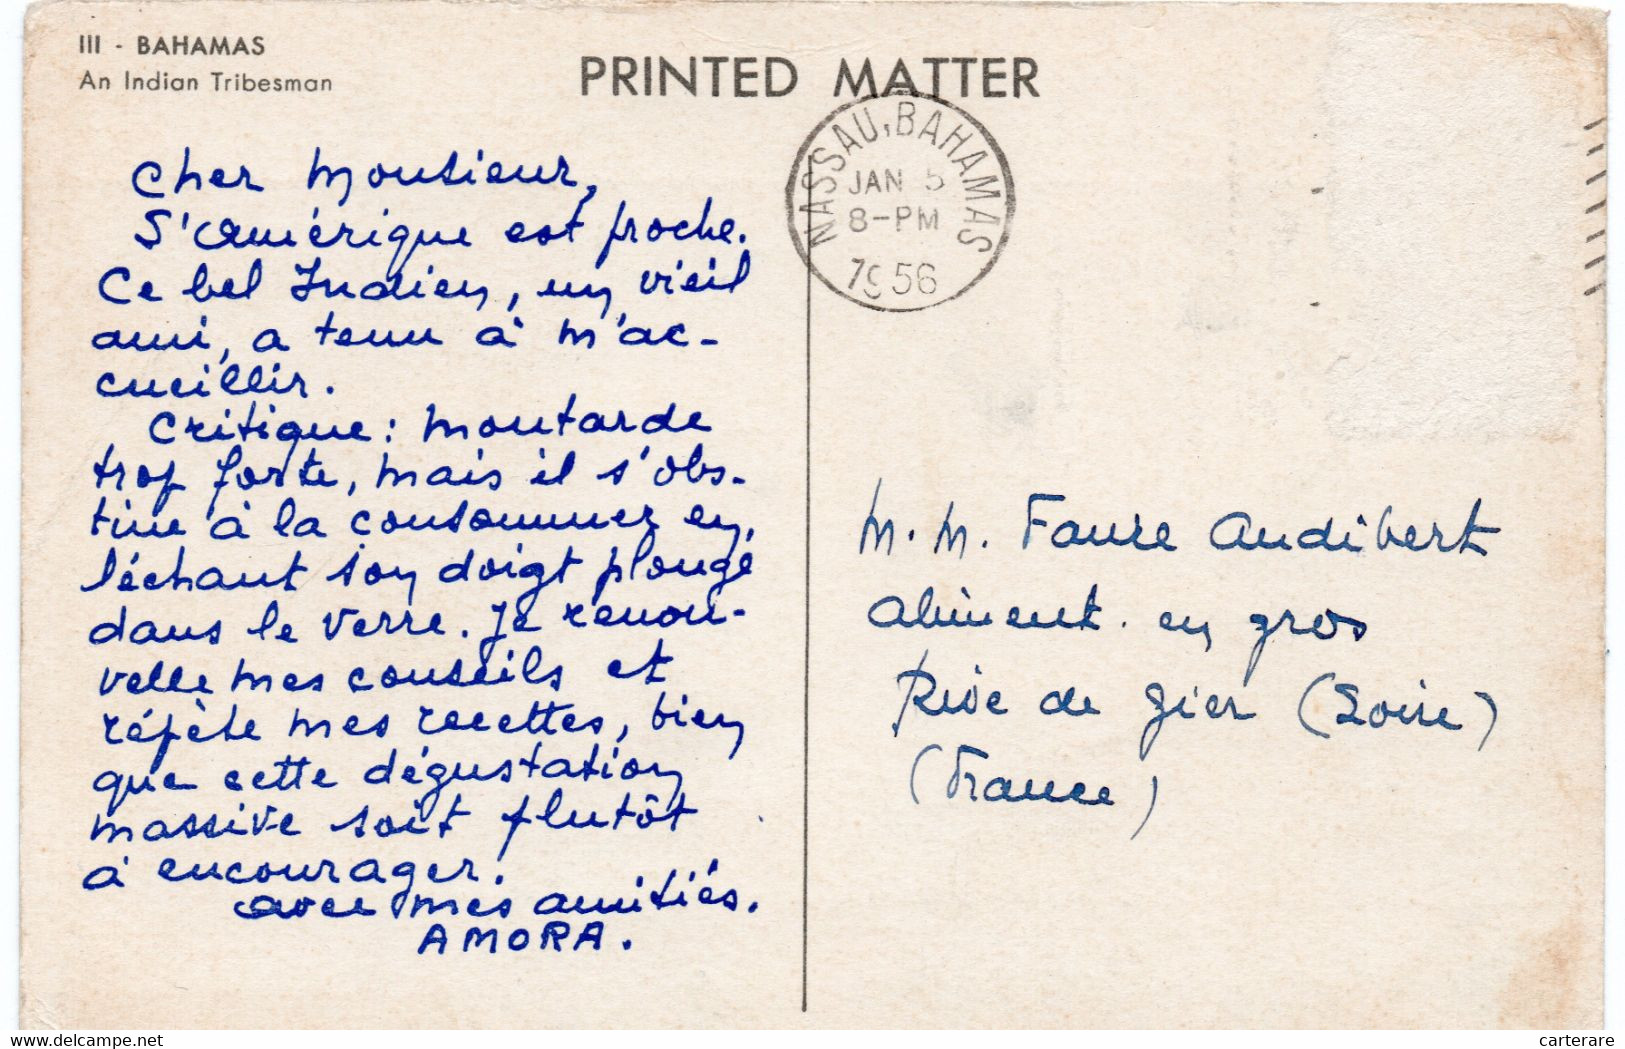 III - BAHAMAS
An Indian Tribesman
PRINTED MATTER
NASSAU, BAHAMAS
JAN 5
8-PM
1956
Cher Monsieur,
S'Amérique est proche.
Ce bel Indien, un vieil
ami, a tenu à m'ac-
cueillir.
Critique : moutarde
trop forte, mais il s'obs-
tine à la consommer en
léchant son doigt plongé
dans le verre. Je renou-
velle mes conseils et
répète mes recettes, bien
que cette dégustation
massive soit plutôt
à encourager.
avec mes amitiés.
AMORA.
M. M. Faure Audibert
aliment. en gros
Rive de Gier (Loire)
(France)
www.delcampe.net
carterare